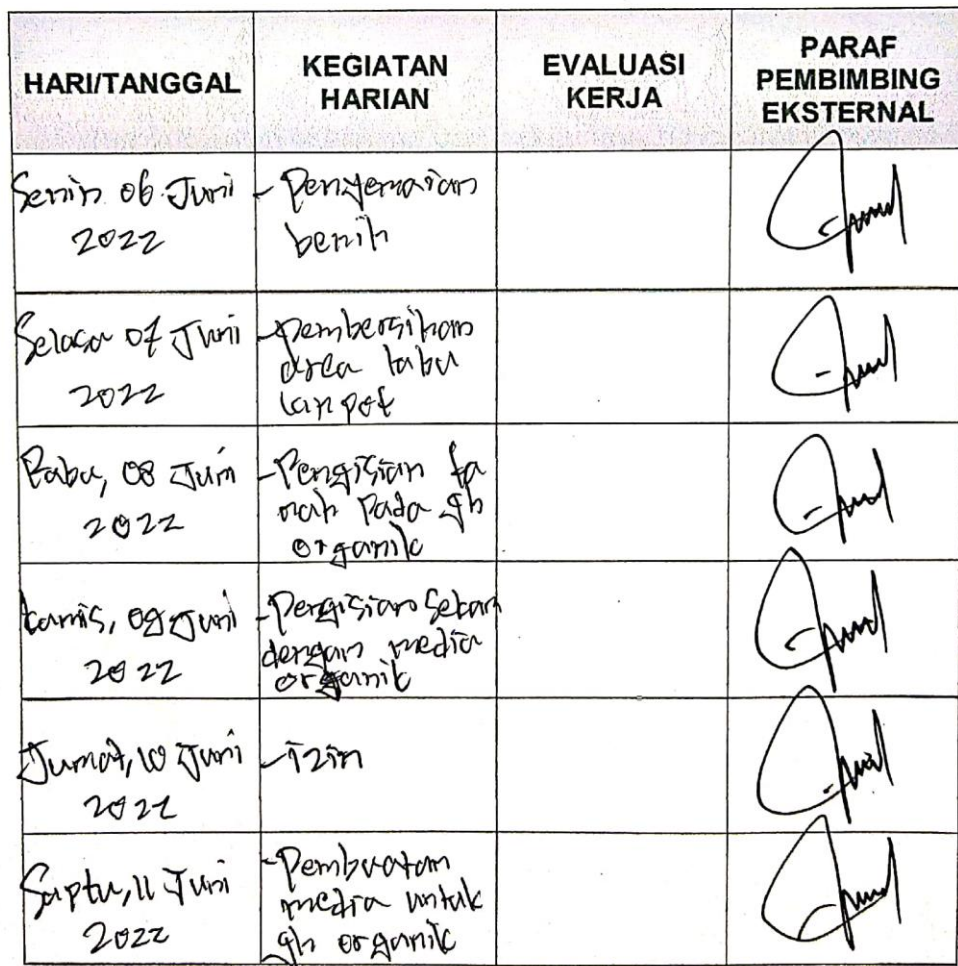 HARI/TANGGAL
KEGIATAN
HARIAN
EVALUASI
KERJA
PARAF
PEMBIMBING
EKSTERNAL
Senin 06 Juni
2022
- Penyemaian
benih
Selasa 07 Juni
2022
- pembersihan
area labu
lanpot
Rabu, 08 Juni
2022
- Pengisian ta
nah Pada gh
organik
kamis, 09 Juni
2022
- Pengisian Sekam
dengan media
organik
Jumat, 10 Juni
2022
- izin
Saptu, 11 Juni
2022
- Pembuatan
media untuk
gh organik